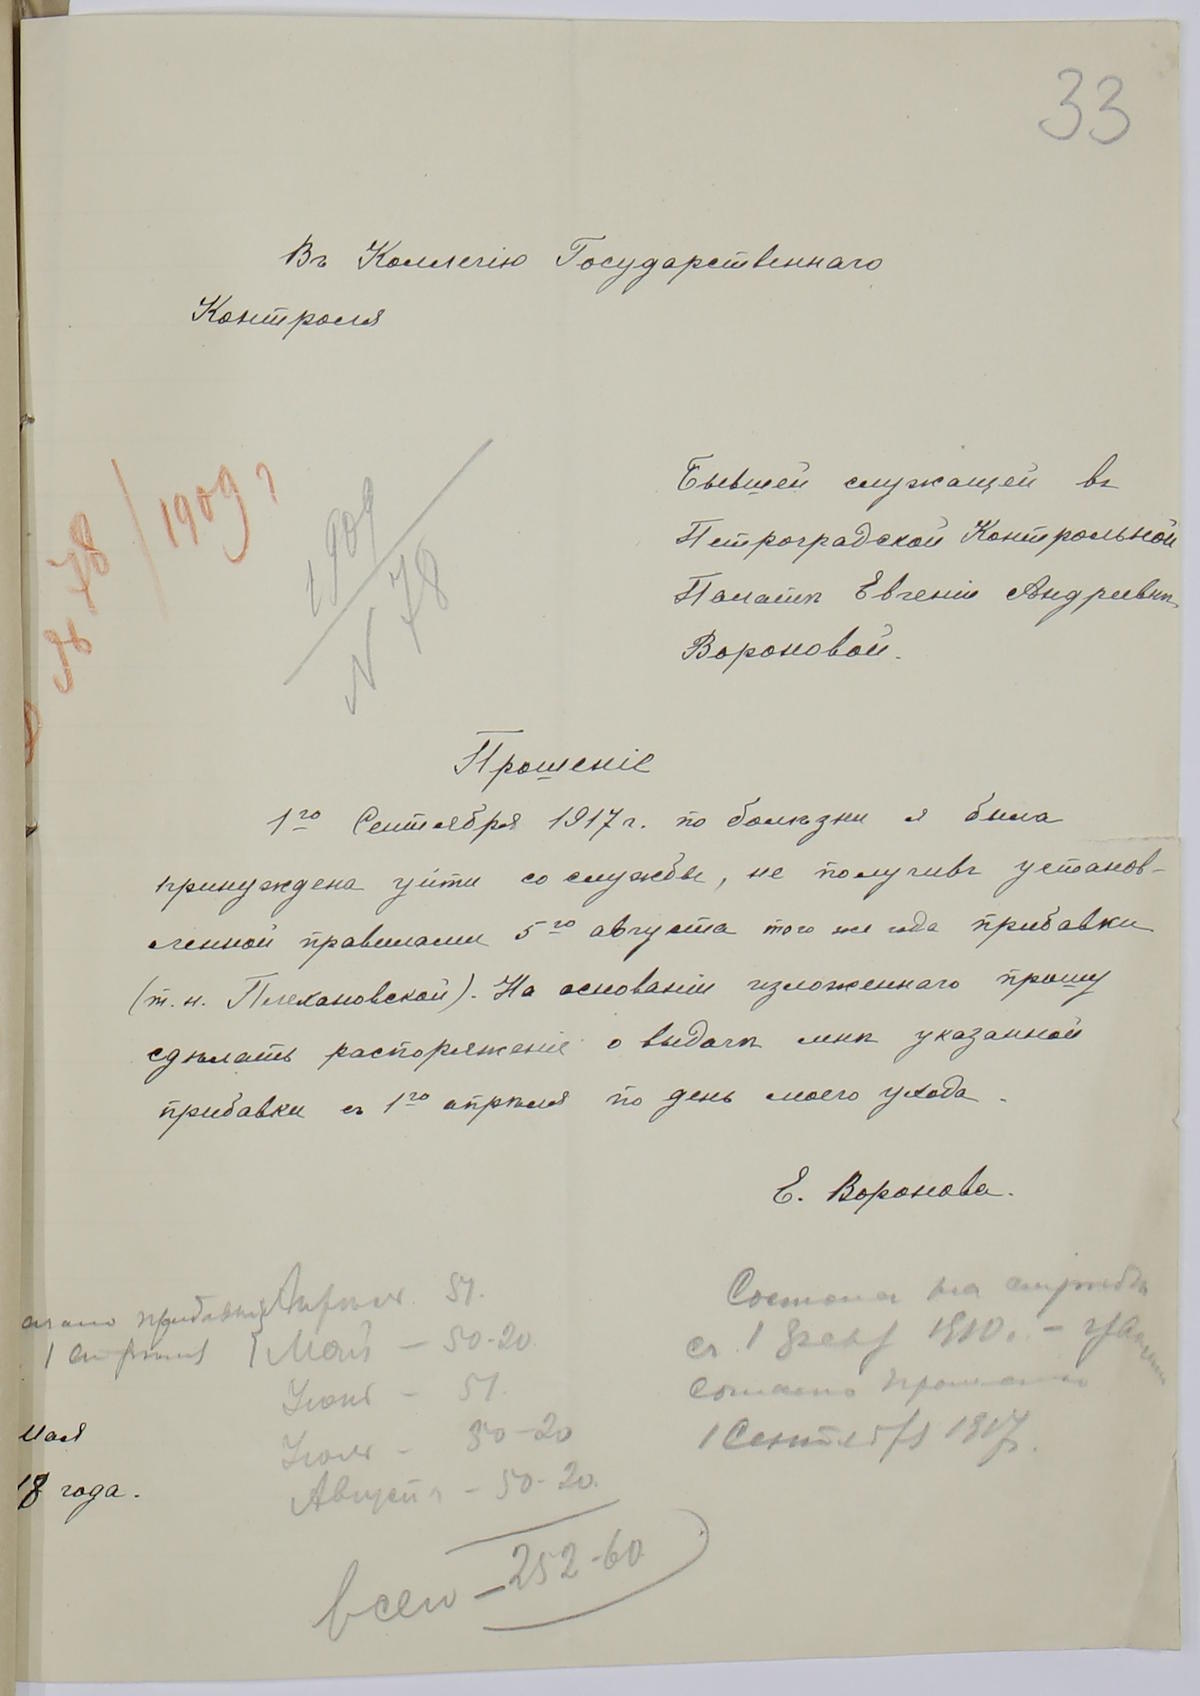 33
Въ Коллегію Государственнаго
Контроля
№ 78 / 1909 г
1909
N 78
Бывшей служащей въ
Петроградской Контрольной
Палатѣ Евгеніи Андреевны
Вороновой.
Прошеніе
1го Сентября 1917 г. по болѣзни я была
принуждена уйти со службы, не получивъ установ-
ленной правилами 5го августа того же года прибавки
(т. н. Плехановской). На основаніи изложеннаго прошу
сдѣлать распоряженіе о выдачѣ мнѣ указанной
прибавки съ 1го апрѣля по день моего ухода.
Е. Воронова.
Апрѣль 51.
Май - 50-20
Іюнь - 51.
Іюль - 50-20
Августъ - 50-20.
всего - 252-60
мая
18 года.
Состояла на службѣ
съ 1 1910 г. -
согласно прошенію
1 Сентября 1917.